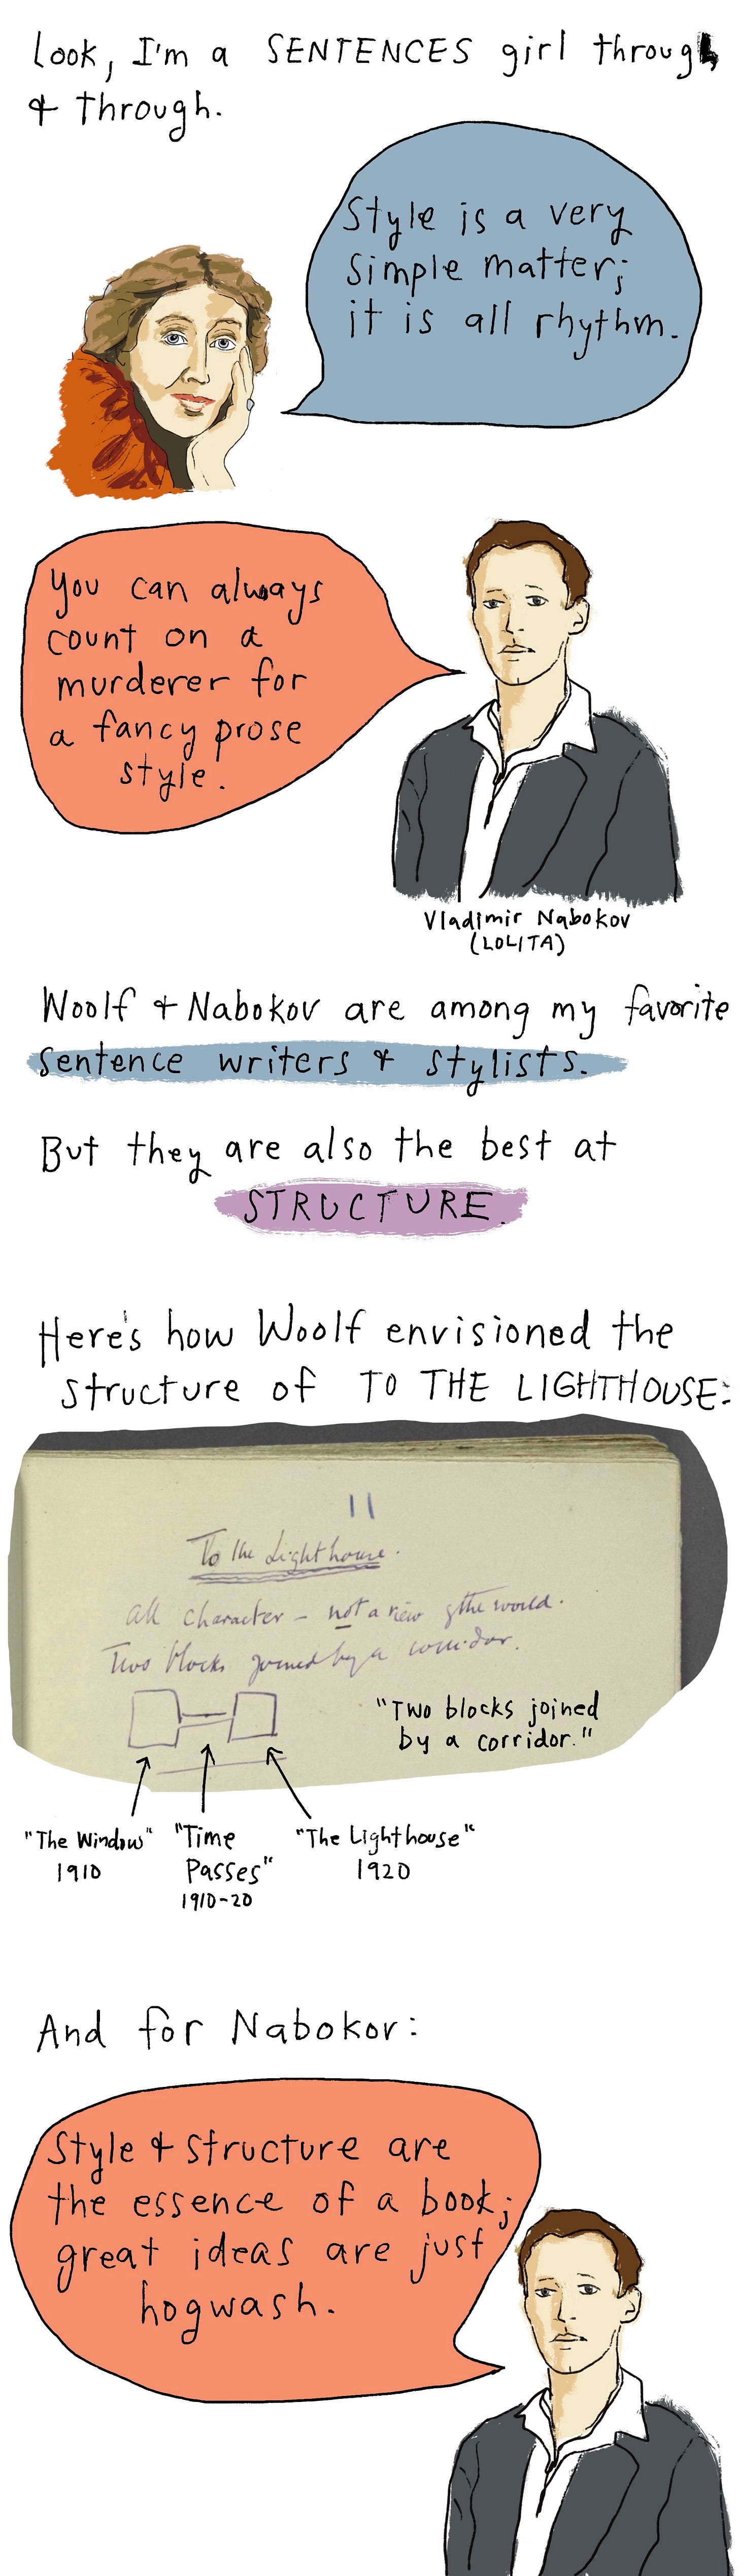 Look, I'm a SENTENCES girl through
& through.
Style is a very
simple matter;
it is all rhythm.
You can always
count on a
murderer for
a fancy prose
style.
Vladimir Nabokov
(LOLITA)
Woolf & Nabokov are among my favorite
sentence writers & stylists.
But they are also the best at
STRUCTURE.
Here's how Woolf envisioned the
structure of TO THE LIGHTHOUSE:
11
To the Lighthouse.
All character - not a view of the world.
Two blocks joined by a corridor.
"Two blocks joined
by a corridor."
"The Window"
1910
"Time
Passes"
1910-20
"The Lighthouse"
1920
And for Nabokov:
Style & structure are
the essence of a book;
great ideas are just
hogwash.